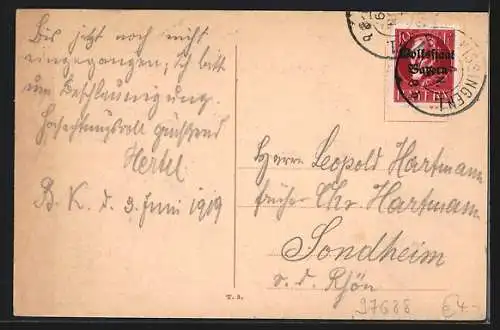 Bis jetzt noch nicht
eingegangen; ich bitt
um Beschleunigung.
Hochachtungsvoll grüssend
Hertel
B. K. d. 3. Juni 1919
10
Volksstaat
Bayern
Herrn Leopold Hartmann
früher Chr. Hartmann
Sondheim
v. d. Rhön
T. S.
97688 €4-